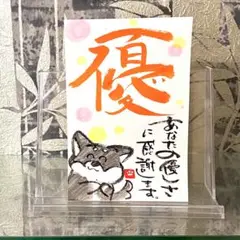 優
あなたの優しさ
に感謝します。